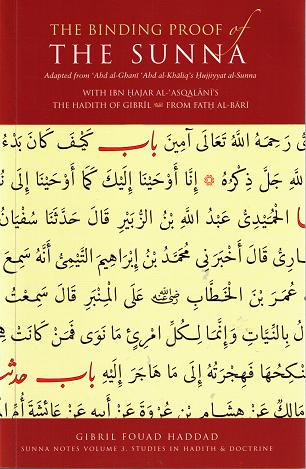 THE BINDING PROOF of
THE SUNNA
Adapted from ʿAbd al-Ghanī ʿAbd al-Khāliq's Ḥujjiyyat al-Sunna
WITH IBN ḤAJAR AL-ʿASQALĀNĪ'S
THE HADITH OF GIBRĪL FROM FATḤ AL-BĀRĪ
رَحِمَهُ اللَّهُ تَعَالَى آمِينَ باب كَيْفَ كَانَ بَدْءُ
اللَّهِ جَلَّ ذِكْرُهُ إِنَّا أَوْحَيْنَا إِلَيْكَ كَمَا أَوْحَيْنَا إِلَى
الْحُمَيْدِيُّ عَبْدُ اللَّهِ بْنُ الزُّبَيْرِ قَالَ حَدَّثَنَا سُفْيَانُ
قَالَ أَخْبَرَنِي مُحَمَّدُ بْنُ إِبْرَاهِيمَ التَّيْمِيُّ أَنَّهُ سَمِعَ
عُمَرَ بْنَ الْخَطَّابِ رضي الله عنه عَلَى الْمِنْبَرِ قَالَ سَمِعْتُ
بِالنِّيَّاتِ وَإِنَّمَا لِكُلِّ امْرِئٍ مَا نَوَى فَمَنْ كَانَتْ
يَنْكِحُهَا فَهِجْرَتُهُ إِلَى مَا هَاجَرَ إِلَيْهِ باب
مَالِكٌ عَنْ هِشَامِ بْنِ عُرْوَةَ عَنْ أَبِيهِ عَنْ عَائِشَةَ
GIBRIL FOUAD HADDAD
SUNNA NOTES VOLUME 3. STUDIES IN HADITH & DOCTRINE